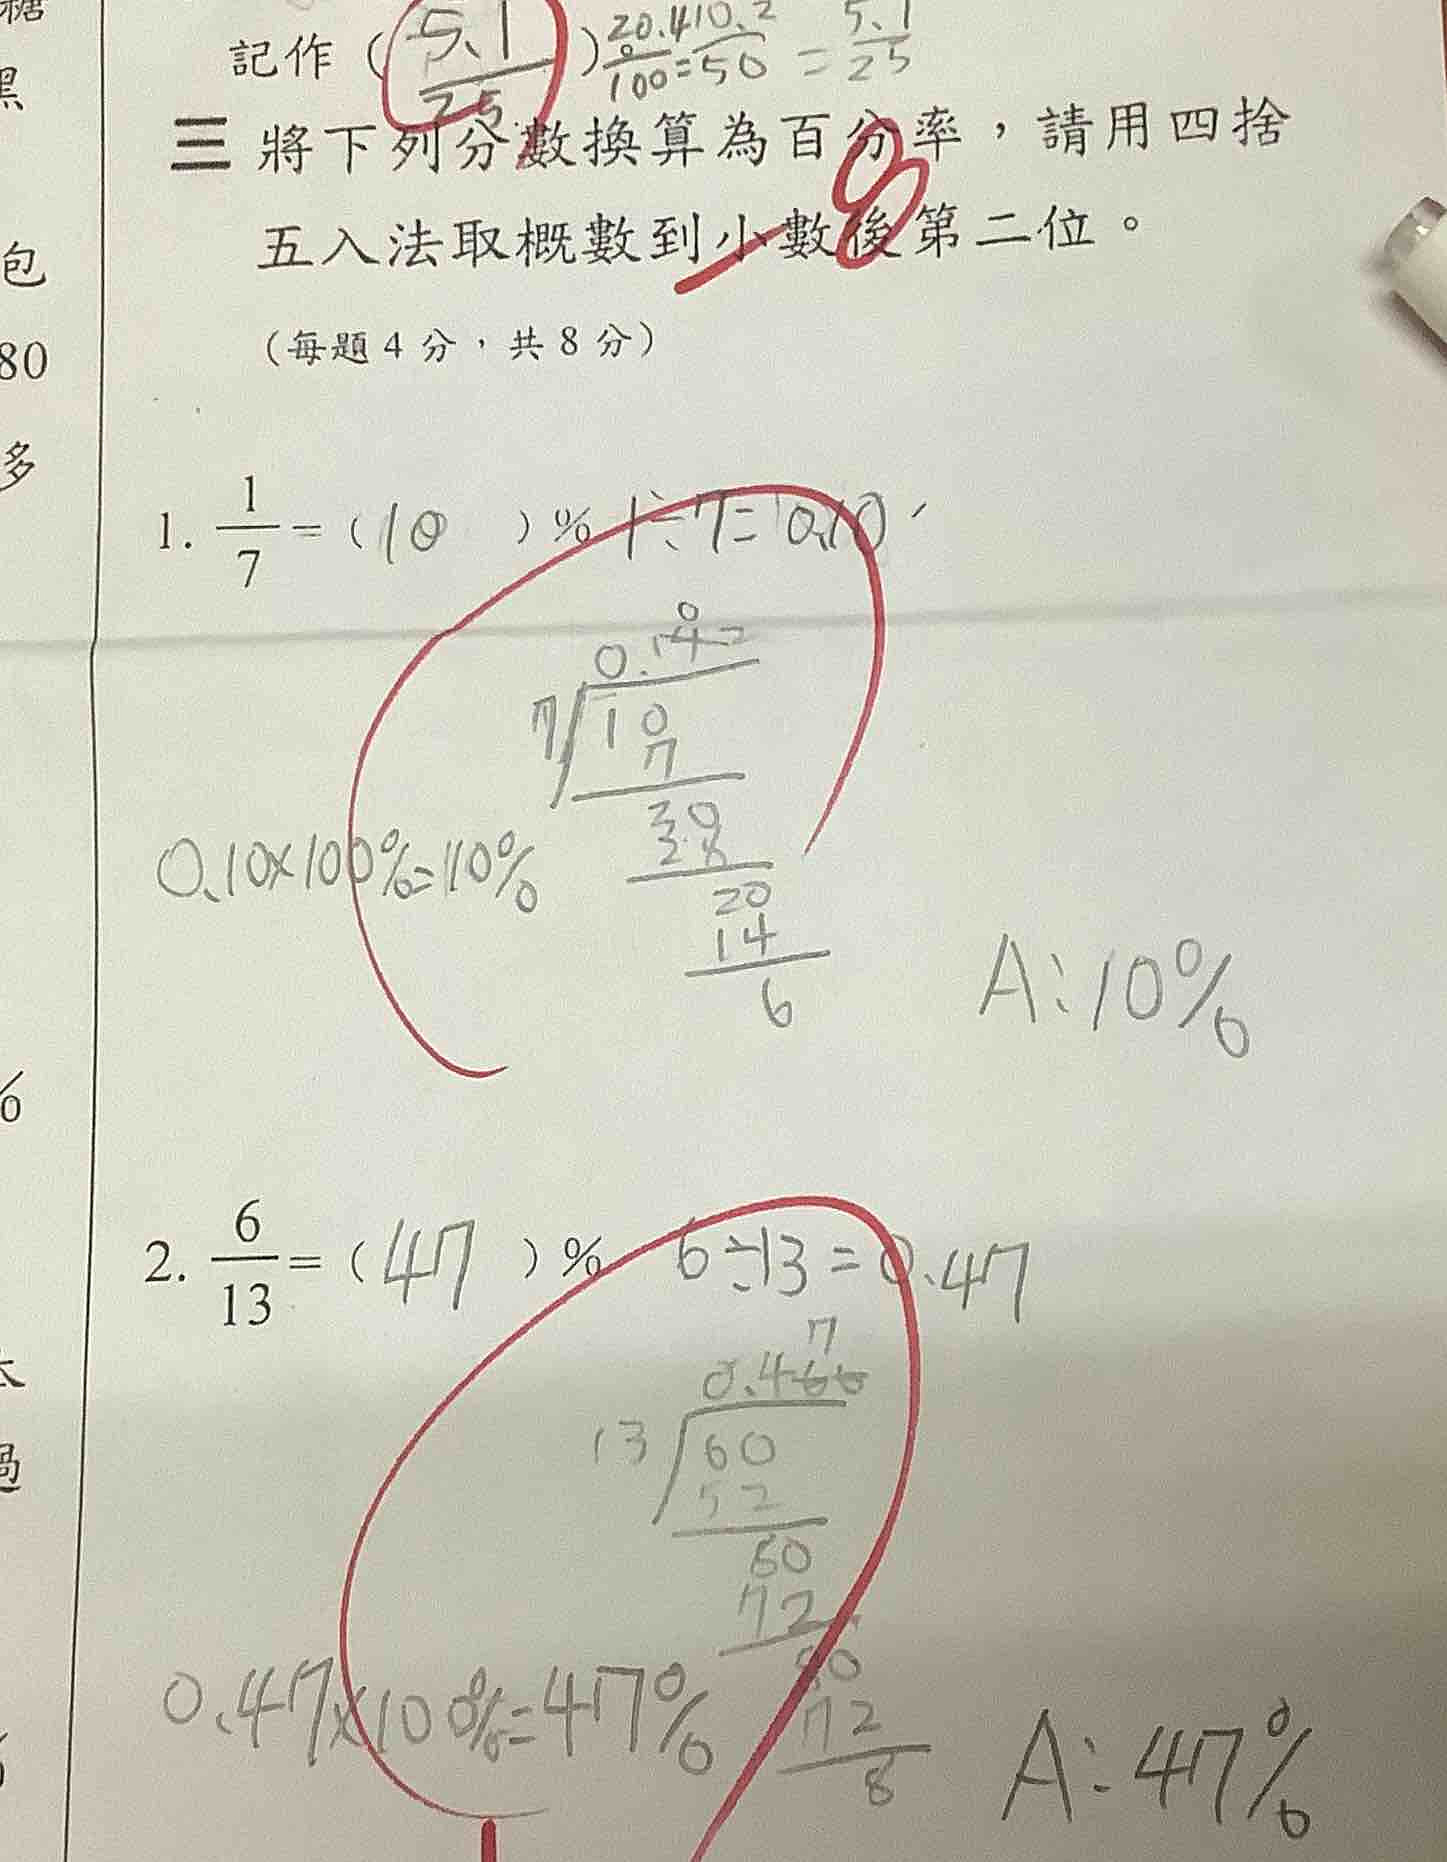 糖
黑
包
80
多
%
本
過
記作 ( 5.1/25 ) 20.4/100 = 10.2/50 = 5.1/25
三 將下列分數換算為百分率，請用四捨
五入法取概數到小數後第二位。
-8
（每題 4 分，共 8 分）
1. 1/7 = ( 10 ) % 1÷7= 0.10
0
0.142
7 10
7
30
28
20
14
6
0.10×100%=10%
A:10%
2. 6/13 = ( 47 ) % 6÷13=0.47
7
0.466
13 60
52
80
72
80
72
8
0.47×100%=47%
A:47%